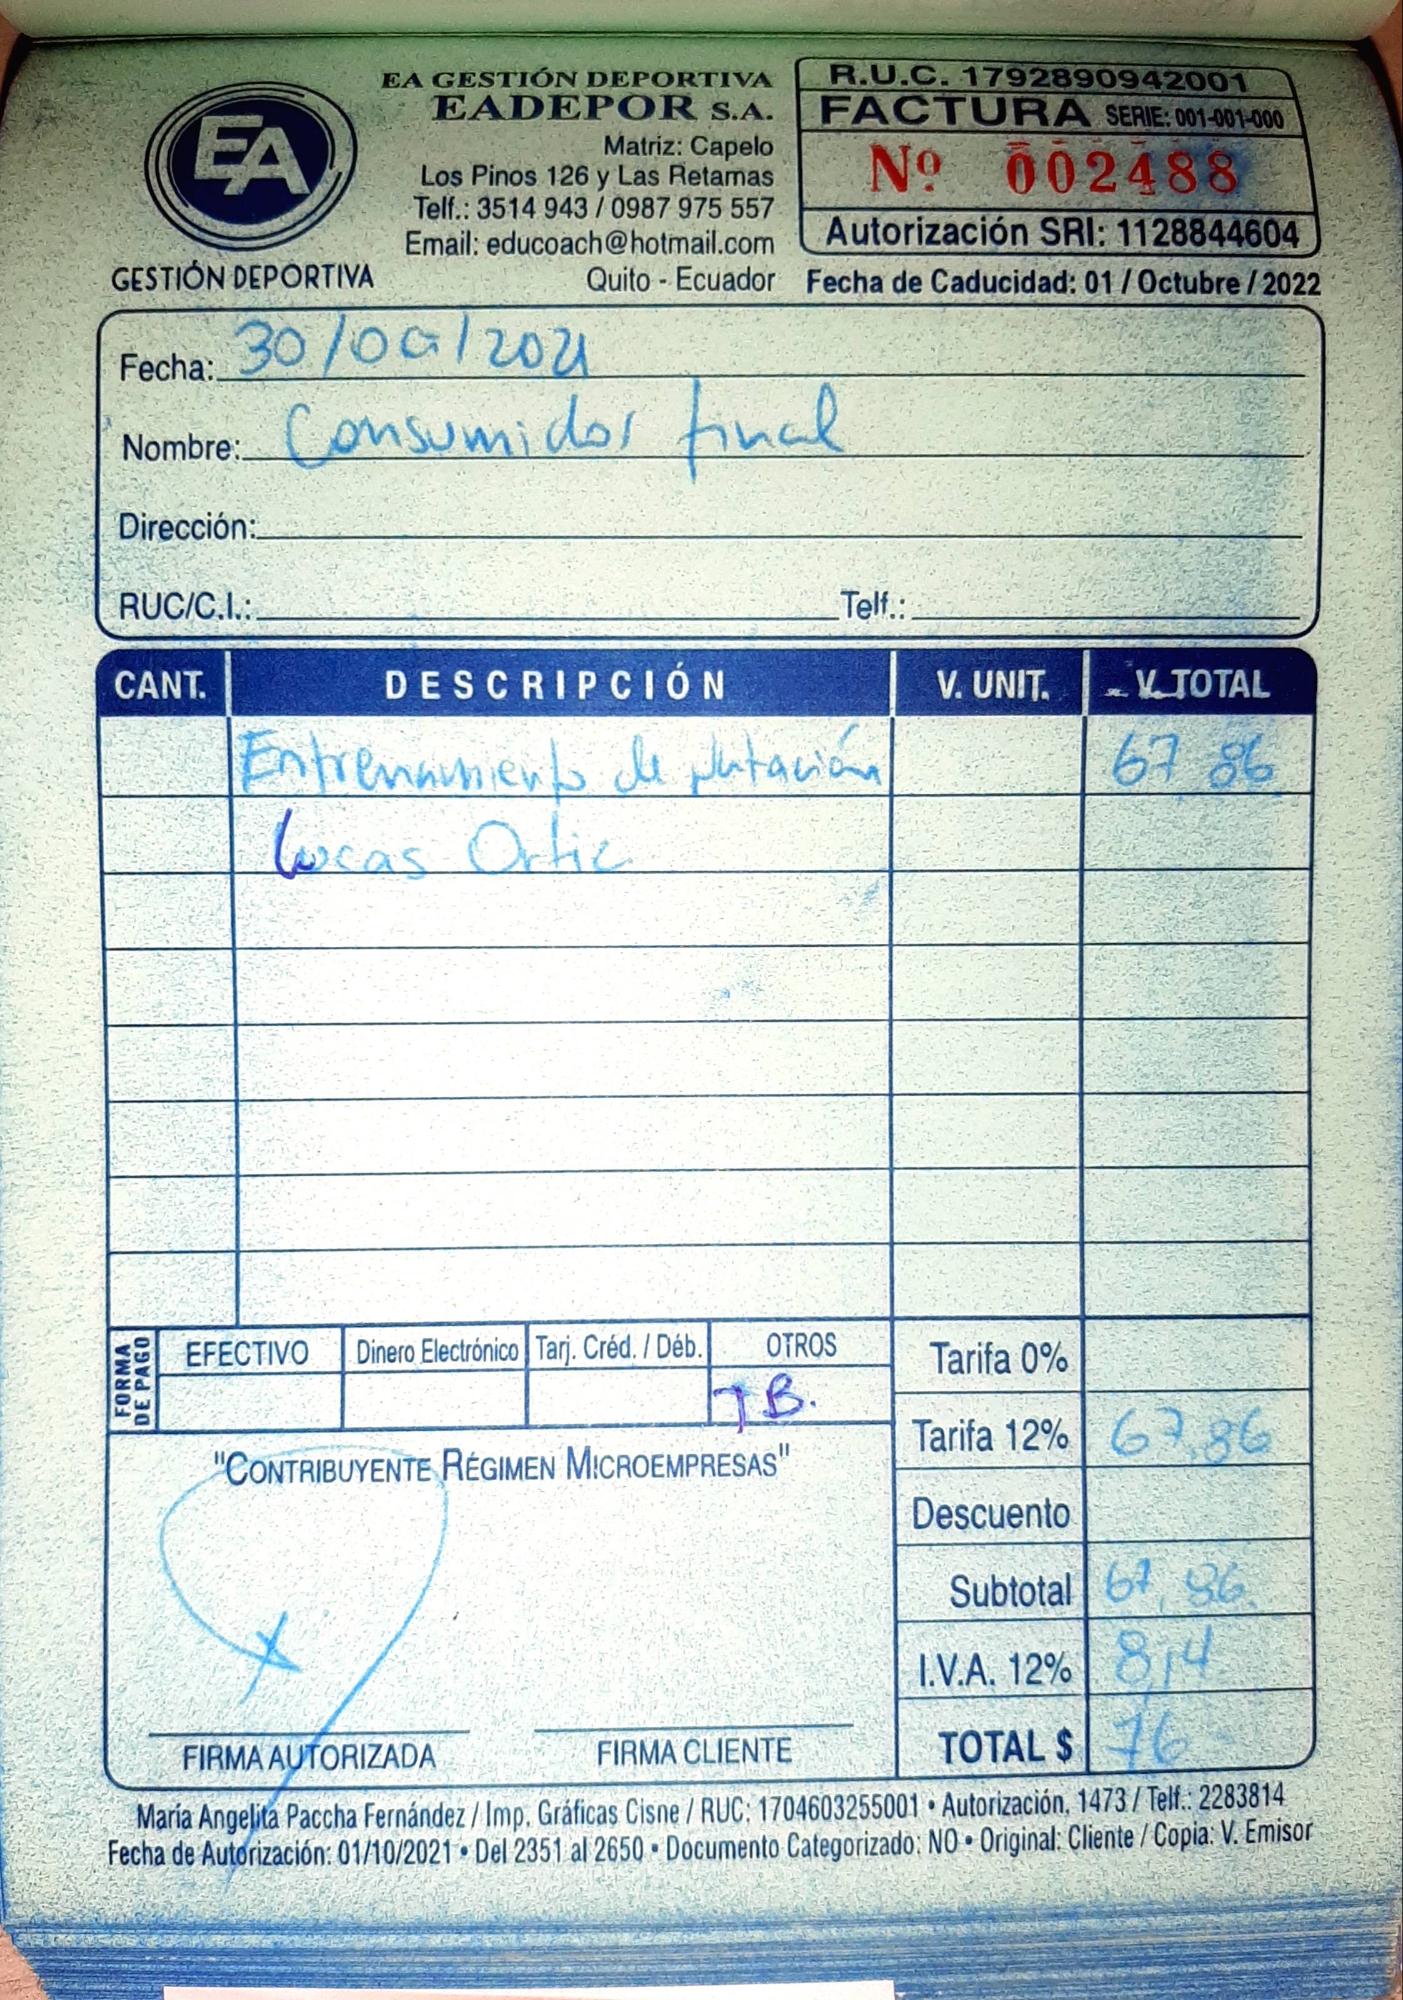 EA
GESTIÓN DEPORTIVA
EA GESTIÓN DEPORTIVA
EADEPOR S.A.
Matriz: Capelo
Los Pinos 126 y Las Retamas
Telf.: 3514 943 / 0987 975 557
Email: educoach@hotmail.com
Quito - Ecuador
R.U.C. 1792890942001
FACTURA SERIE: 001-001-000
Nº 002488
Autorización SRI: 1128844604
Fecha de Caducidad: 01 / Octubre / 2022
Fecha: 30/oct/2021
Nombre: Consumidor final
Dirección:
RUC/C.I.: Telf.:
CANT. DESCRIPCIÓN V. UNIT. V. TOTAL
Entrenamiento de natación 67 86
Lucas Ortiz
FORMA DE PAGO
EFECTIVO Dinero Electrónico Tarj. Créd. / Déb. OTROS
TB.
"CONTRIBUYENTE RÉGIMEN MICROEMPRESAS"
FIRMA AUTORIZADA FIRMA CLIENTE
Tarifa 0%
Tarifa 12% 67,86
Descuento
Subtotal 67,86
I.V.A. 12% 8,14
TOTAL $ 76
María Angelita Paccha Fernández / Imp. Gráficas Cisne / RUC: 1704603255001 • Autorización. 1473 / Telf.: 2283814
Fecha de Autorización: 01/10/2021 • Del 2351 al 2650 • Documento Categorizado: NO • Original: Cliente / Copia: V. Emisor